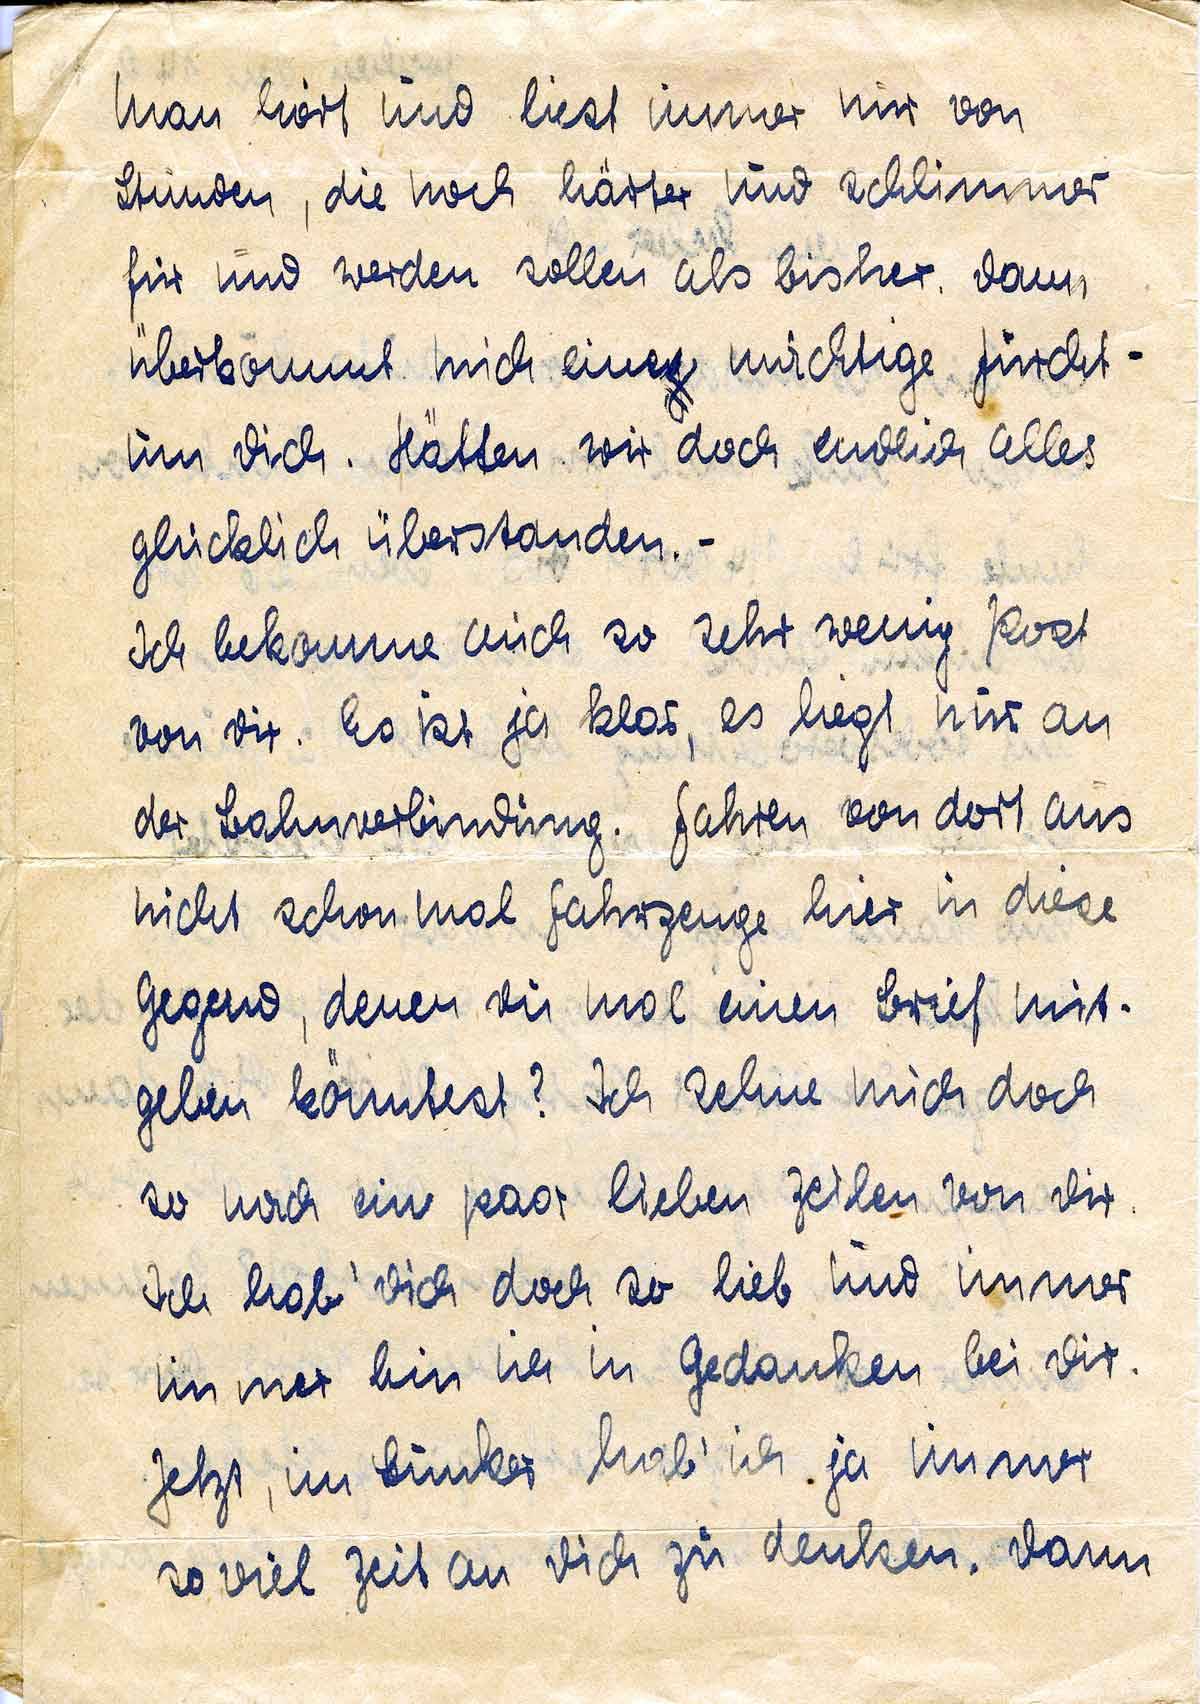 Man hört und liest immer nur von
Stunden, die noch härter und schlimmer
für und werden sollen als bisher. Dann
überkommt mich eine mächtige Furcht -
um Dich. Hätten wir doch endlich alles
glücklich überstanden. -
Ich bekomme auch so sehr wenig Post
von Dir. Es ist ja klar, es liegt nur an
der Bahnverbindung. Fahren von dort aus
nicht schon mal Fahrzeuge hier in diese
Gegend, denen Du mal einen Brief mit-
geben könntest? Ich sehne mich doch
so nach ein paar lieben Zeilen von Dir.
Ich hab' Dich doch so lieb und immer
immer bin ich in Gedanken bei Dir.
Jetzt, im Bunker hab' ich ja immer
so viel Zeit an Dich zu denken. Dann